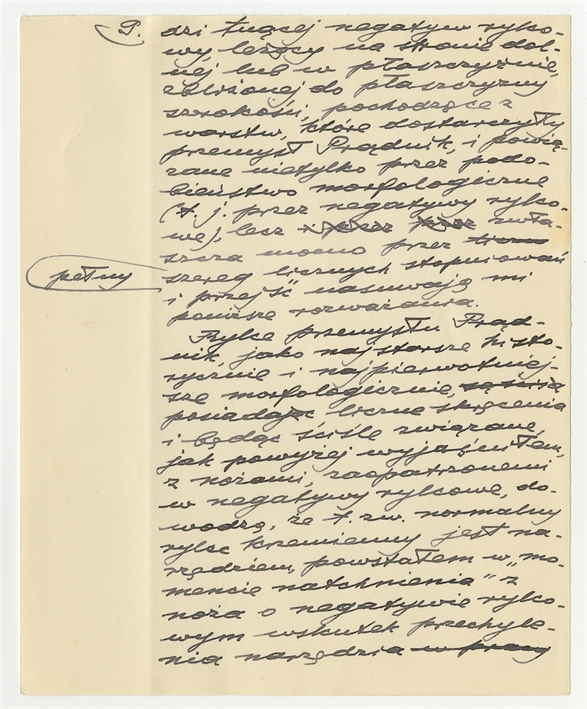 9. dzi tnącej negatyw rylco-
wy, leżący na stronie dol-
nej lub w płaszczyźnie,
zbliżonej do płaszczyzny
szerokości, pochodzące z
warstw, które dostarczyły
przemysł Prądnik, i powią-
zane nietylko przez podo-
bieństwo morfologiczne
(t. j. przez negatywy rylco-
we), lecz i przez przez zwła-
szcza mocno przez
pełny szereg licznych stopniowań
i przejść nasuwają mi
poniższe rozważania.
Rylce przemysłu Prąd-
nik, jako najstarsze histo-
rycznie i najpierwotniej-
sze morfologicznie, są ściśle
posiadając liczne skręcenia
i będąc ściśle związane,
jak powyżej wyjaśniłem,
z nożami, zaopatrzonemi
w negatywy rylcowe, do-
wodzą, że t. zw. normalny
rylec krzemienny jest na-
rzędziem, powstałem w „mo-
mencie natchnienia" z
noża o negatywie rylco-
wym wskutek przechyle-
nia narzędzia w pracy